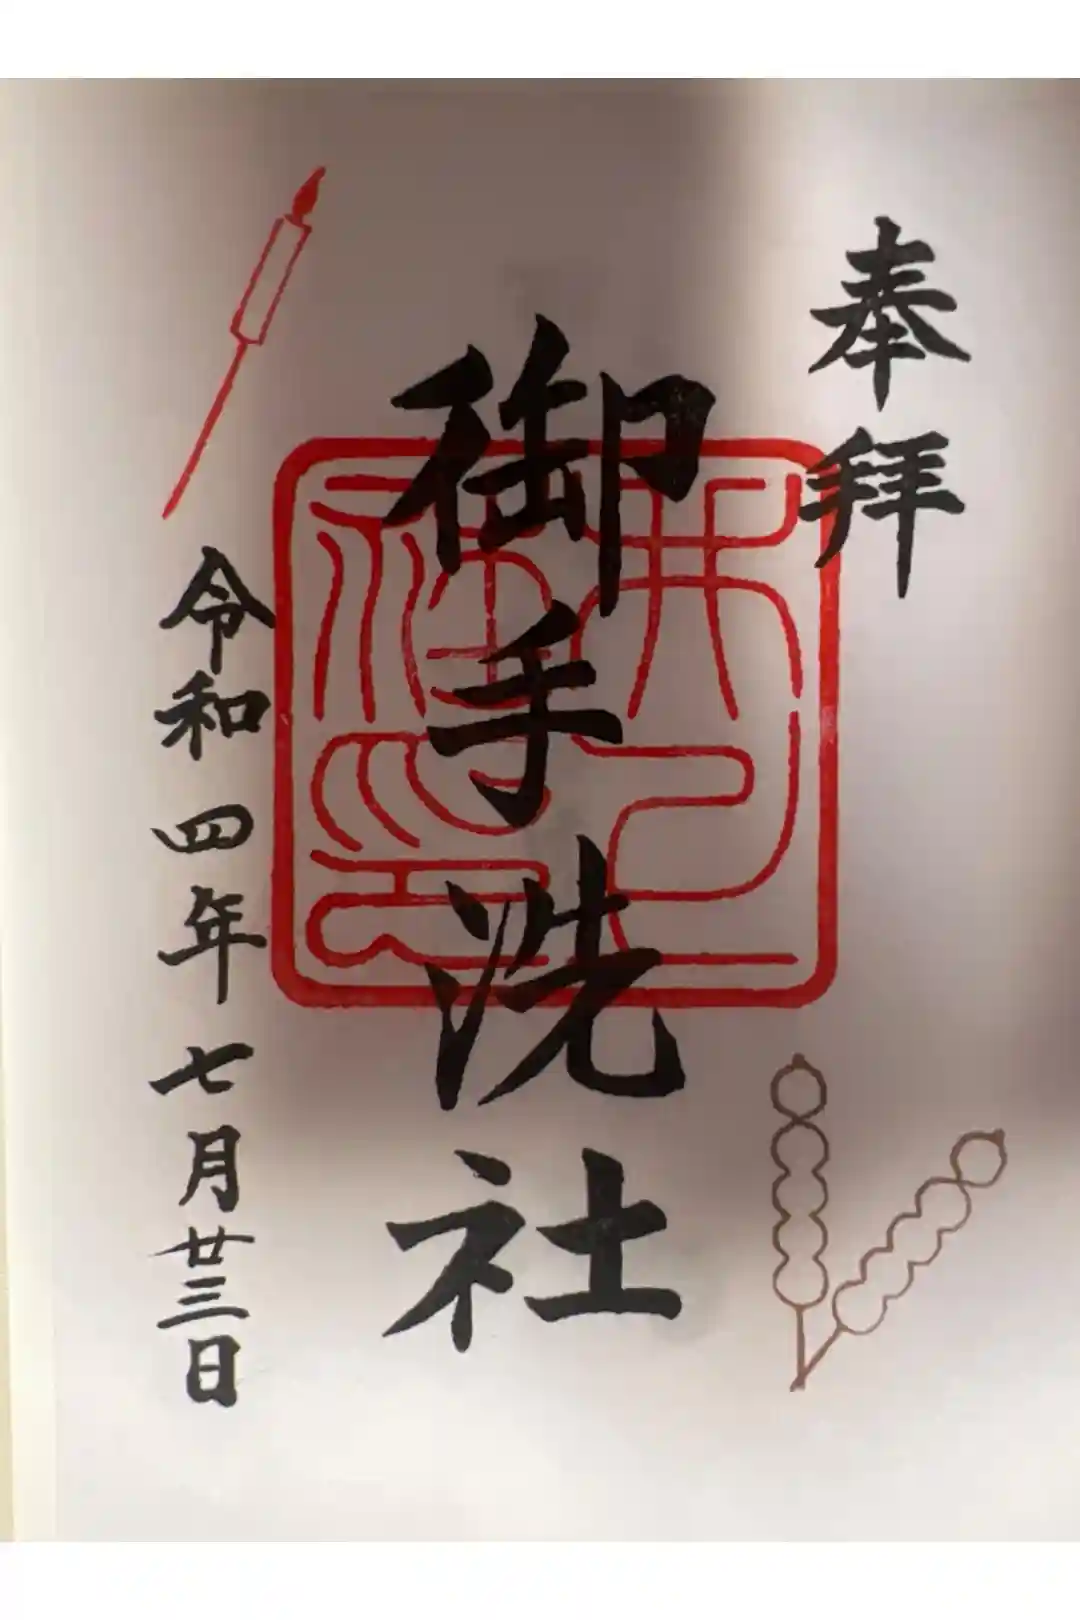 奉拝
御手洗社
令和四年七月廿三日